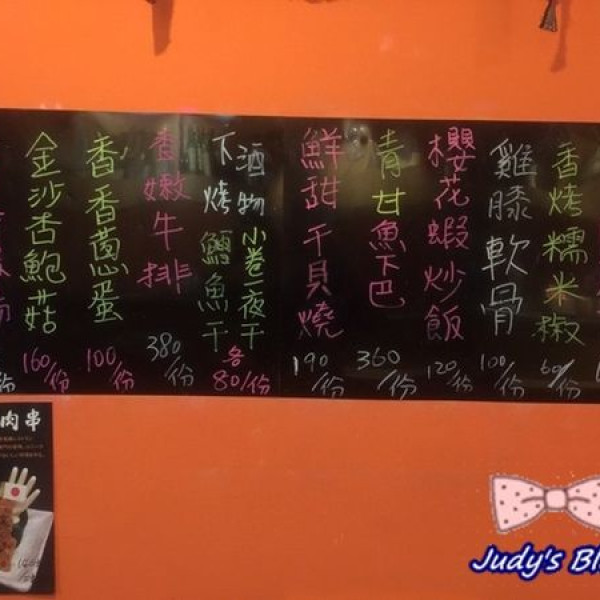 香烤糯米椒
60/份
雞膝軟骨
100/份
櫻花蝦炒飯
120/份
青甘魚下巴
360/份
鮮甜干貝燒
190/份
下酒物
小卷一夜干
烤鱈魚干
各80/份
香嫩牛排
380/份
香香蔥蛋
100/份
金沙杏鮑菇
160/份
份
肉串
Judy's Bl